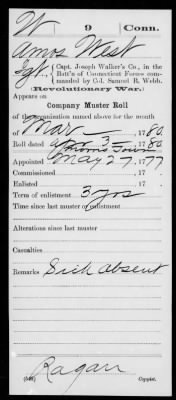 W 9 Conn.
Amos West
Sgt, Capt. Joseph Walker's Co., in the
Batt'n of Connecticut Forces com-
manded by Col. Samuel B. Webb.
(Revolutionary War.)
Appears on
Company Muster Roll
of the organization named above for the month
of Mar, 1780.
Roll dated Apr 3, 1780.
Morris Town
Appointed May 27, 1777
Commissioned, 17
Enlisted, 17
Term of enlistment 3 yrs
Time since last muster or enlistment
Alterations since last muster
Casualties
Remarks Sick absent
Ragan
Copyist.